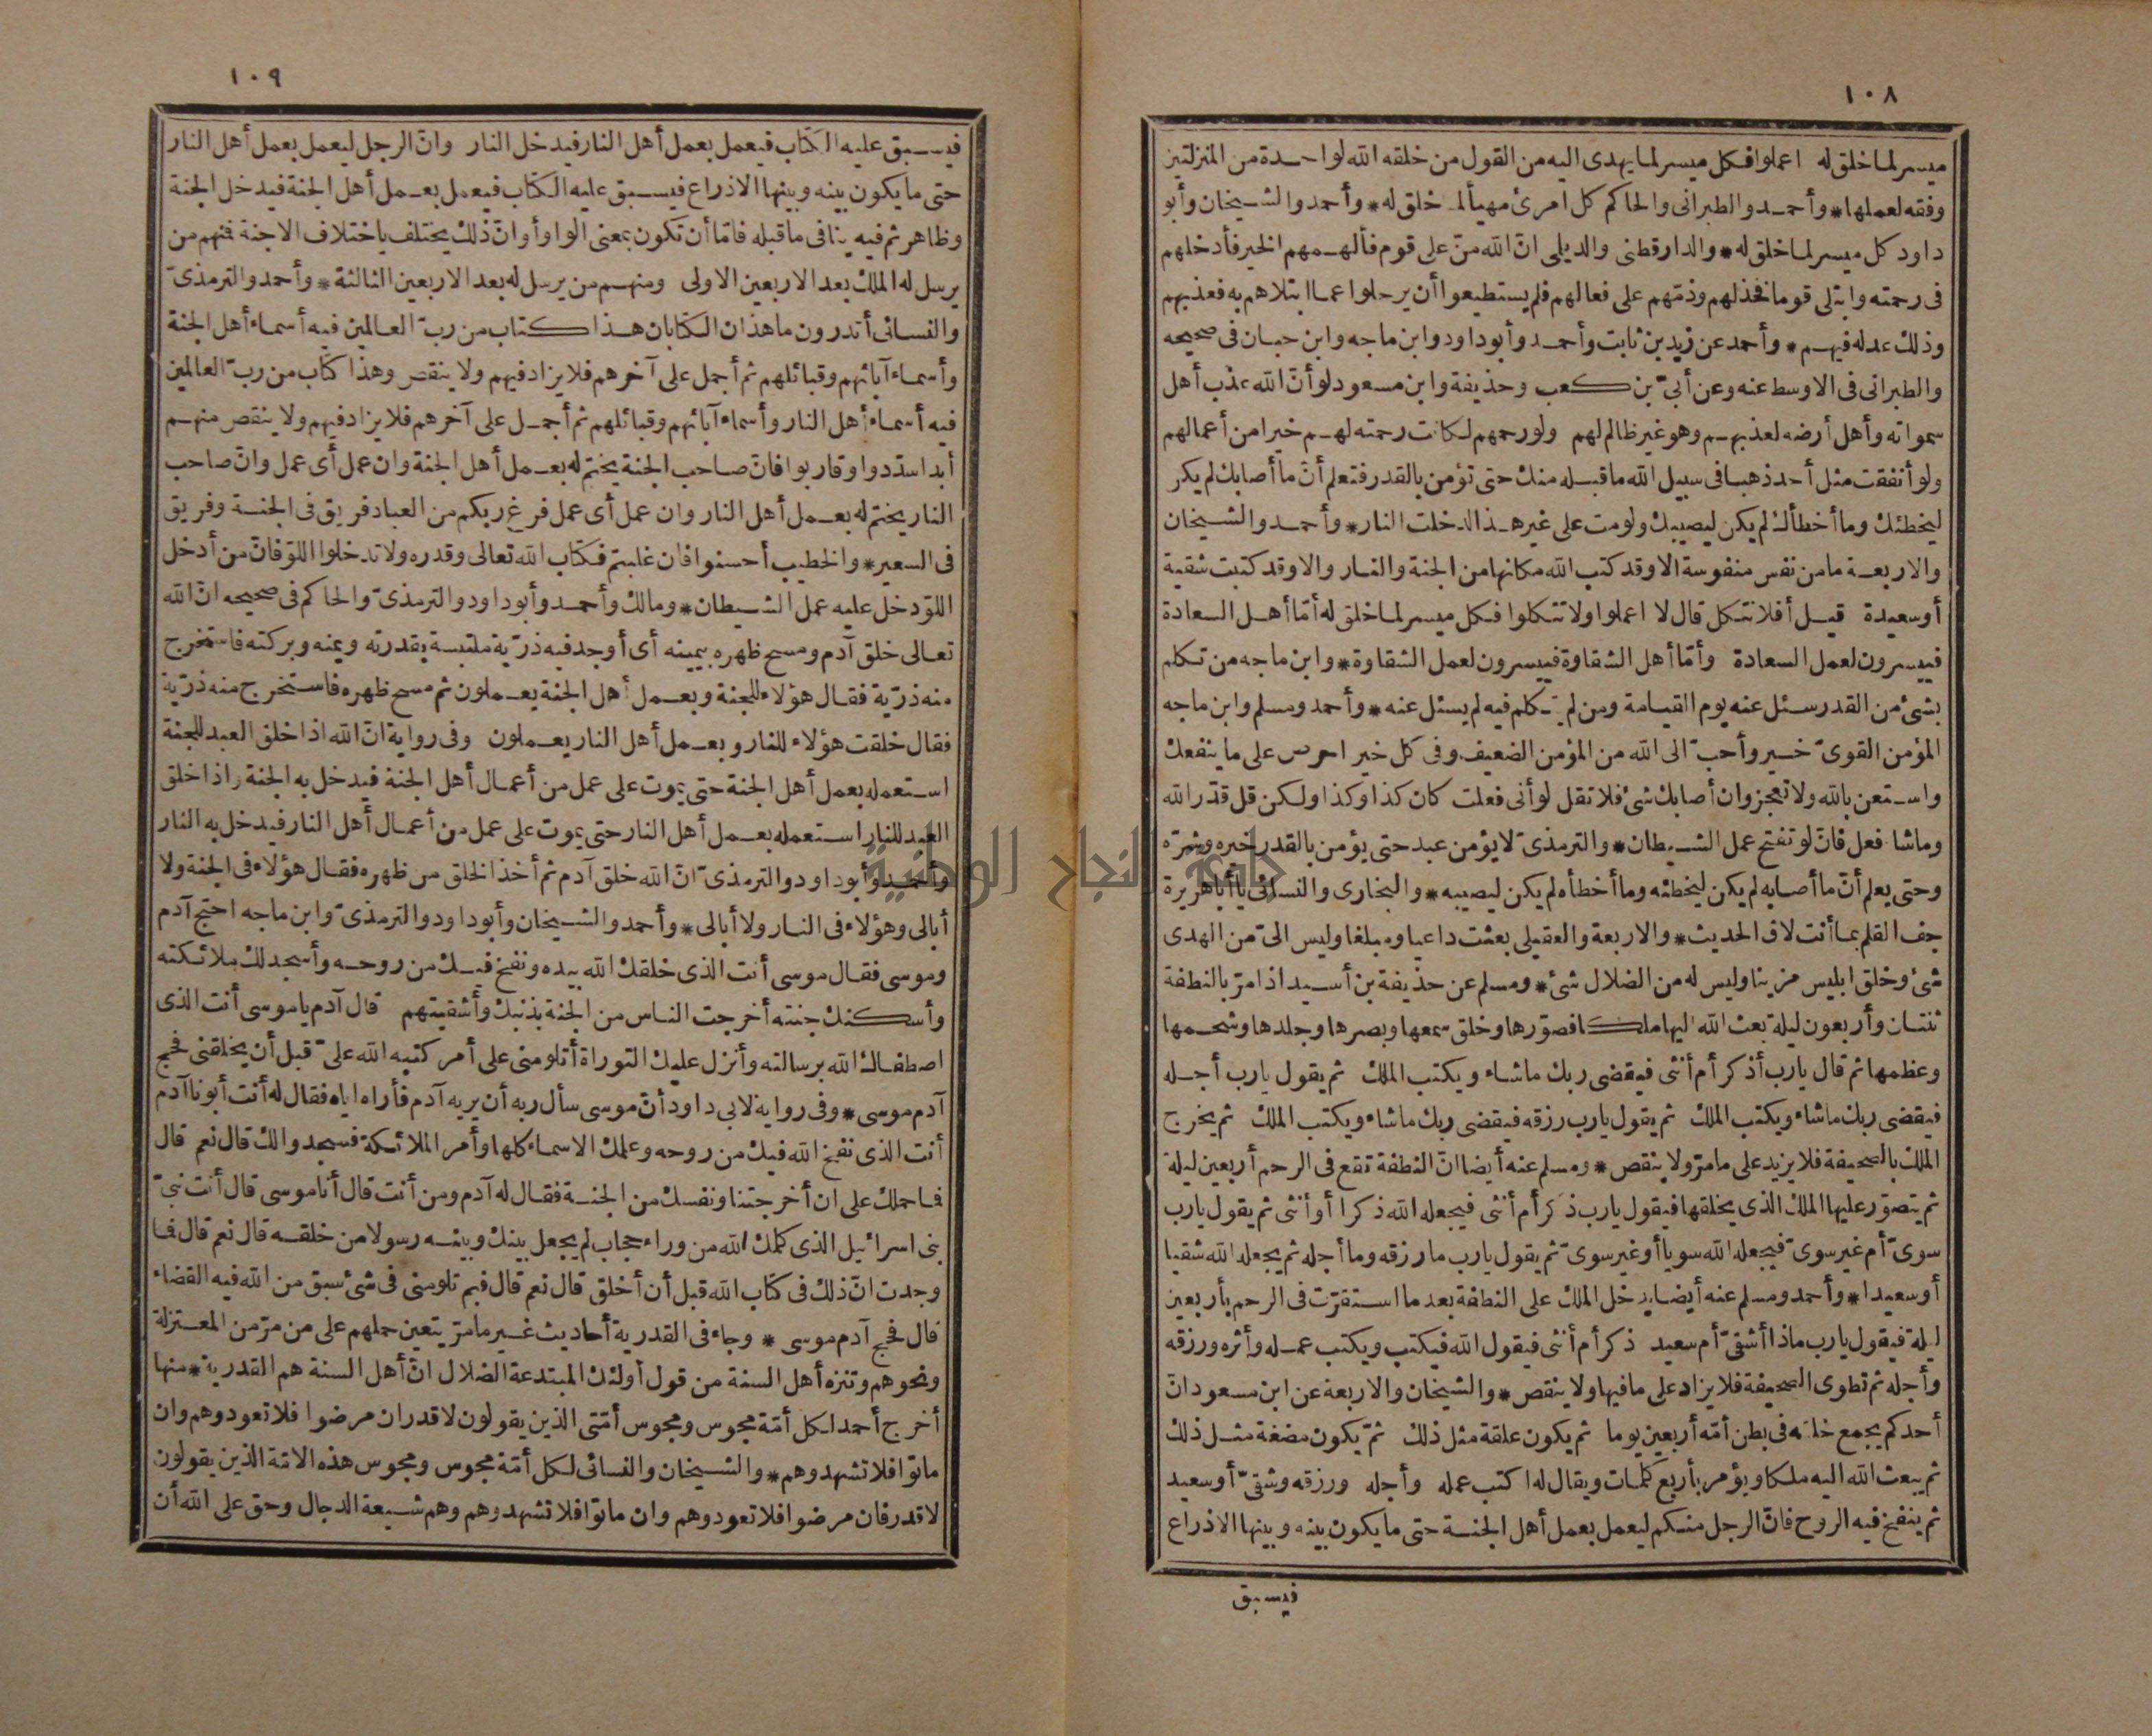 ١٠٨
ميسر لما خلق له اعملوا فكل ميسر لما يهدى اليه من القول من خلقه الله لواحدة من المنزلتين
وفقه لعملها * وأحمد والطبرانى والحاكم كل امرئ مهيأ لما خلق له * وأحمد والشيخان وأبو
داود كل ميسر لما خلق له * والدارقطنى والديلى انّ الله منّ على قوم فألهمهم الخير فأدخلهم
فى رحمته وابتلى قوما فخذلهم وذمّهم على فعالهم فلم يستطيعوا أن يرحلوا عما ابتلاهم به فعذبهم
وذلك عدله فيهم * وأحمد عن زيد بن ثابت وأحمد وأبوداود وابن ماجه وابن حبان فى صحيحه
والطبرانى فى الاوسط عنه وعن أبىّ بن كعب وحذيفة وابن مسعود لو أنّ الله عذب أهل
سمواته وأهل أرضه لعذبهم وهو غير ظالم لهم ولو رحمهم لكانت رحمته لهم خيرا من أعمالهم
ولو أنفقت مثل أحد ذهبا فى سبيل الله ما قبله منك حتى تؤمن بالقدر فتعلم أنّ ما أصابك لم يكن
ليخطئك وما أخطأك لم يكن ليصيبك ولو مت على غير هذا لدخلت النار * وأحمد والشيخان
والاربعة ما من نفس منفوسة الا وقد كتب الله مكانها من الجنة والنار والا وقد كتبت شقية
أو سعيدة قيل أفلا نتكل قال لا اعملوا ولا تتكلوا فكل ميسر لما خلق له أمّا أهل السعادة
فييسرون لعمل السعادة وأمّا أهل الشقاوة فييسرون لعمل الشقاوة * وابن ماجه من تكلم
بشئ من القدر سئل عنه يوم القيامة ومن لم يتكلم فيه لم يسئل عنه * وأحمد ومسلم وابن ماجه
المؤمن القوىّ خير وأحبّ الى الله من المؤمن الضعيف وفى كل خير احرص على ما ينفعك
واستعن بالله ولا تعجز وان أصابك شئ فلا تقل لو أنى فعلت كان كذا وكذا ولكن قل قدر الله
وما شاء فعل فانّ لو تفتح عمل الشيطان * والترمذىّ لا يؤمن عبد حتى يؤمن بالقدر خيره وشرّه
وحتى يعلم أنّ ما أصابه لم يكن ليخطئه وما أخطأه لم يكن ليصيبه * والبخارى والنسائى يا أبا هريرة
جف القلم بما أنت لاق الحديث * والاربعة والعقيلى بعثت داعيا ومبلغا وليس الىّ من الهدى
شئ وخلق ابليس مزينا وليس له من الضلال شئ * ومسلم عن حذيفة بن أسيد اذا مرّ بالنطفة
ثنتان وأربعون ليلة بعث الله اليها ملكا فصوّرها وخلق سمعها وبصرها وجلدها وشحمها
وعظمها ثم قال يارب أذكر أم أنثى فيقضى ربك ما شاء ويكتب الملك ثم يقول يارب أجله
فيقضى ربك ما شاء ويكتب الملك ثم يقول يارب رزقه فيقضى ربك ما شاء ويكتب الملك ثم يخرج
الملك بالصحيفة فلا يزيد على ما مرّ ولا ينقص * ومسلم عنه أيضا انّ النطفة تقع فى الرحم أربعين ليلة
ثم يتصوّر عليها الملك الذى يخلقها فيقول يارب ذكر أم أنثى فيجعله الله ذكرا أو أنثى ثم يقول يارب
سوىّ أم غير سوىّ فيجعله الله سويا أو غير سوىّ ثم يقول يارب ما رزقه وما أجله ثم يجعله الله شقيا
أو سعيدا * وأحمد ومسلم عنه أيضا يدخل الملك على النطفة بعد ما استقرّت فى الرحم بأربعين
ليلة فيقول يارب ماذا أشقىّ أم سعيد ذكر أم أنثى فيقول الله فيكتب ويكتب عمله وأثره ورزقه
وأجله ثم تطوى الصحيفة فلا يزاد على ما فيها ولا ينقص * والشيخان والاربعة عن ابن مسعود انّ
أحدكم يجمع خلقه فى بطن أمّه أربعين يوما ثم يكون علقة مثل ذلك ثم يكون مضغة مثل ذلك
ثم يبعث الله اليه ملكا ويؤمر بأربع كلمات ويقال له اكتب عمله وأجله ورزقه وشقىّ أو سعيد
ثم ينفخ فيه الروح فانّ الرجل منكم ليعمل بعمل أهل الجنة حتى ما يكون بينه وبينها الا ذراع
فيسبق
١٠٩
فيسبق عليه الكتاب فيعمل بعمل أهل النار فيدخل النار وانّ الرجل ليعمل بعمل أهل النار
حتى ما يكون بينه وبينها الا ذراع فيسبق عليه الكتاب فيعمل بعمل أهل الجنة فيدخل الجنة
وظاهر ثم فيه ينافى ما قبله فامّا أن تكون بمعنى الواو أو انّ ذلك يختلف باختلاف الاجنة فمنهم من
يرسل له الملك بعد الاربعين الاولى ومنهم من يرسل له بعد الاربعين الثالثة * وأحمد والترمذىّ
والنسائى أتدرون ما هذان الكتابان هذا كتاب من ربّ العالمين فيه أسماء أهل الجنة
وأسماء آبائهم وقبائلهم ثم أجمل على آخرهم فلا يزاد فيهم ولا ينقص وهذا كتاب من ربّ العالمين
فيه أسماء أهل النار وأسماء آبائهم وقبائلهم ثم أجمل على آخرهم فلا يزاد فيهم ولا ينقص منهم
أبدا سدّدوا وقاربوا فانّ صاحب الجنة يختم له بعمل أهل الجنة وان عمل أى عمل وانّ صاحب
النار يختم له بعمل أهل النار وان عمل أى عمل فرغ ربكم من العباد فريق فى الجنة وفريق
فى السعير * والخطيب أحسنوا فان غلبتم فكتاب الله تعالى وقدره ولا تدخلوا اللوّ فانّ من أدخل
اللوّ دخل عليه عمل الشيطان * ومالك وأحمد وأبوداود والترمذىّ والحاكم فى صحيحه انّ الله
تعالى خلق آدم ومسح ظهره بيمينه أى أوجد فيه ذرّية ملتبسة بقدرته ويمنه وبركته فاستخرج
منه ذرّية فقال هؤلاء للجنة وبعمل أهل الجنة يعملون ثم مسح ظهره فاستخرج منه ذرّية
فقال خلقت هؤلاء للنار وبعمل أهل النار يعملون وفى رواية انّ الله اذا خلق العبد للجنة
استعمله بعمل أهل الجنة حتى يموت على عمل من أعمال أهل الجنة فيدخل به الجنة واذا خلق
العبد للنار استعمله بعمل أهل النار حتى يموت على عمل من أعمال أهل النار فيدخل به النار
وأحمد وأبوداود والترمذىّ انّ الله خلق آدم ثم أخذ الخلق من ظهره فقال هؤلاء فى الجنة ولا
أبالى وهؤلاء فى النار ولا أبالى * وأحمد والشيخان وأبوداود والترمذىّ وابن ماجه احتج آدم
وموسى فقال موسى أنت الذى خلقك الله بيده ونفخ فيك من روحه وأسجد لك ملائكته
وأسكنك جنته أخرجت الناس من الجنة بذنبك وأشقيتهم قال آدم يا موسى أنت الذى
اصطفاك الله برسالته وأنزل عليك التوراة أتلومنى على أمر كتبه الله علىّ قبل أن يخلقنى فحج
آدم موسى * وفى رواية لابى داود أنّ موسى سأل ربه أن يريه آدم فأراه اياه فقال له أنت أبونا آدم
أنت الذى نفخ الله فيك من روحه وعلمك الاسماء كلها وأمر الملائكة فسجدوا لك قال نعم قال
فما حملك على ان أخرجتنا ونفسك من الجنة فقال له آدم ومن أنت قال أنا موسى قال أنت نبىّ
بنى اسرائيل الذى كلمك الله من وراء حجاب لم يجعل بينك وبينه رسولا من خلقه قال نعم قال فما
وجدت انّ ذلك فى كتاب الله قبل أن أخلق قال نعم قال فبم تلومنى فى شئ سبق من الله فيه القضاء
قال فحج آدم موسى * وجاء فى القدرية أحاديث غير ما مرّ يتعين حملهم على من مرّ من المعتزلة
ونحوهم وتنزه أهل السنة من قول أولئك المبتدعة الضلال انّ أهل السنة هم القدرية * منها
أخرج أحمد لكل أمّة مجوس ومجوس أمّتى الذين يقولون لا قدر ان مرضوا فلا تعودوهم وان
ماتوا فلا تشهدوهم * والشيخان والنسائى لكل أمّة مجوس ومجوس هذه الامّة الذين يقولون
لا قدر فان مرضوا فلا تعودوهم وان ماتوا فلا تشهدوهم وهم شيعة الدجال وحق على الله أن
جامعة النجاح الوطنية